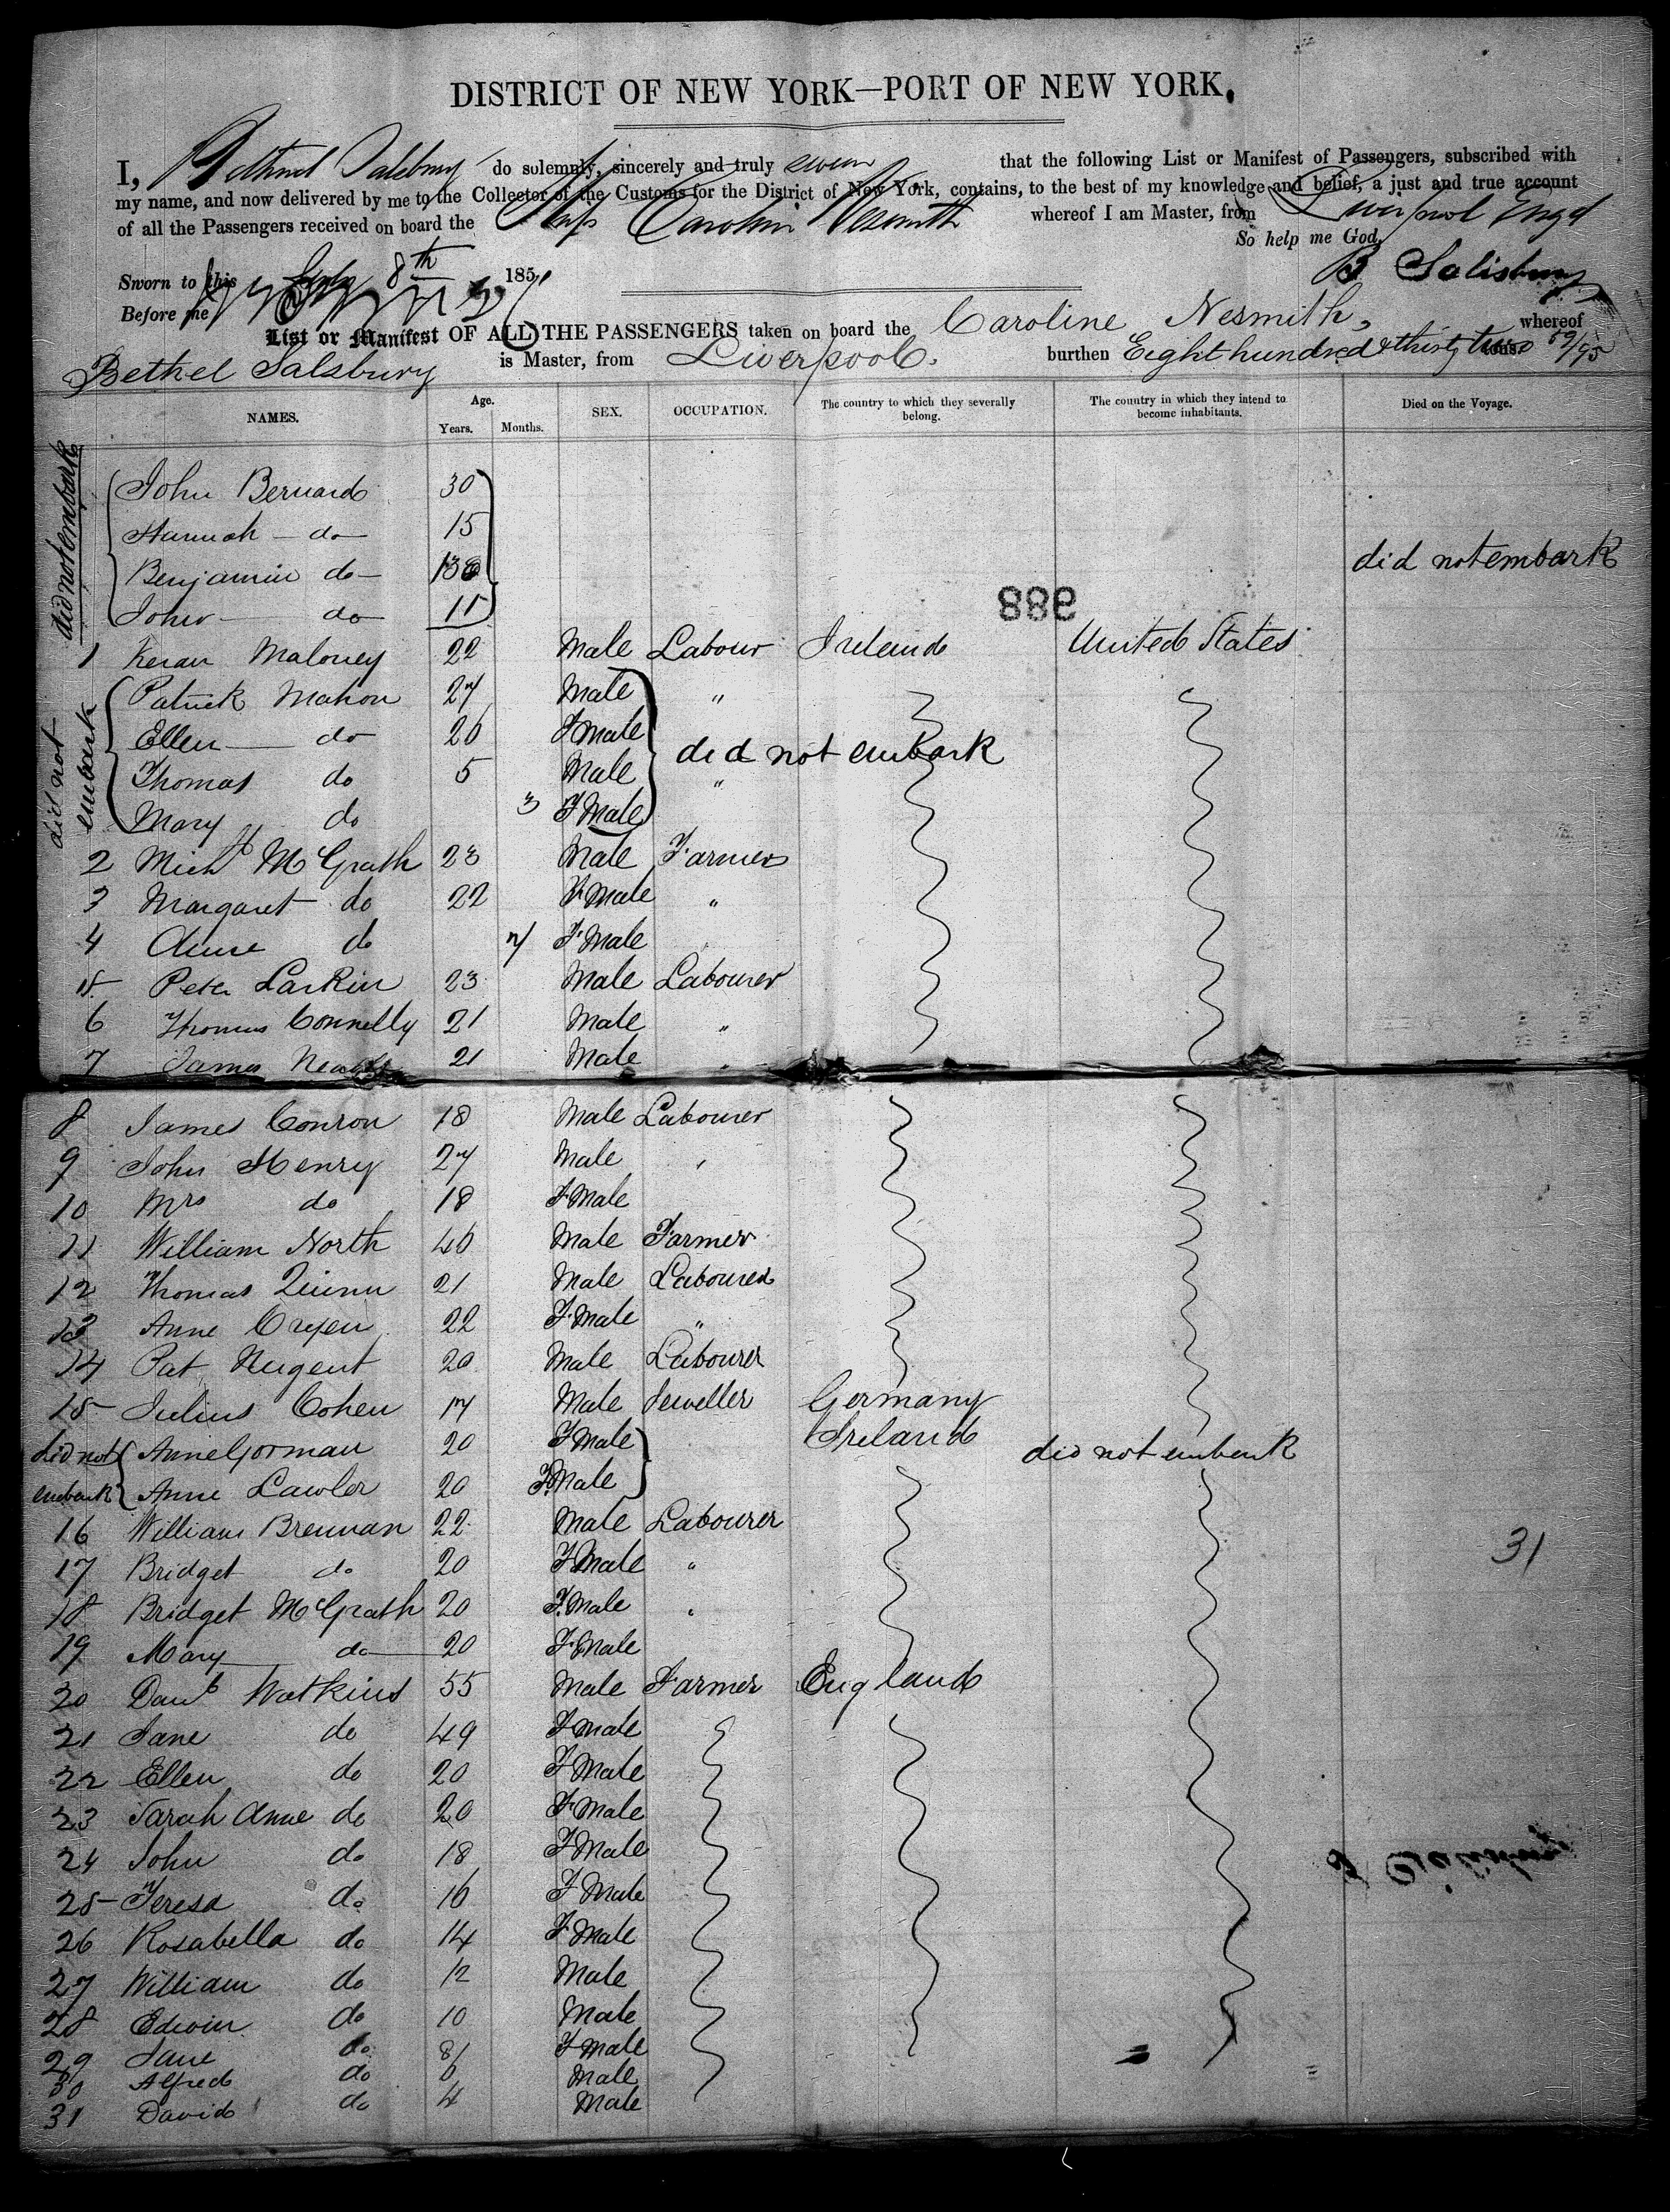 DISTRICT OF NEW YORK—PORT OF NEW YORK.
I, Bethuel Salsbury do solemnly, sincerely and truly swear that the following List or Manifest of Passengers, subscribed with
my name, and now delivered by me to the Collector of the Customs for the District of New York, contains, to the best of my knowledge and belief, a just and true account
of all the Passengers received on board the Ship Caroline Nesmith whereof I am Master, from Liverpool Engd
So help me God,
Sworn to this July 8th 185
B Salisbury
Before me
List or Manifest OF ALL THE PASSENGERS taken on board the Caroline Nesmith, whereof
Bethel Salsbury is Master, from Liverpool. burthen Eight hundred & thirty two tons 59/95
NAMES. Age. Years. Months. SEX. OCCUPATION. The country to which they severally belong. The country in which they intend to become inhabitants. Died on the Voyage.
did not embark
John Bernard 30
Hannah do 15
Benjamin do 13
did not embark
John do 11
886
1 Keran Maloney 22 Male Labour Ireland United States
did not embark
Patrick Mahon 27 Male "
Ellen do 26 F Male
did not embark
Thomas do 5 Male "
Mary do 3 F Male
2 Mich McGrath 23 Male Farmer
3 Margaret do 22 F Male "
4 Anne do 7 F Male
5 Peter Larkin 23 Male Labourer
6 Thomas Connelly 21 Male "
7 James 21 Male "
8 James Conron 18 Male Labourer
9 John Henry 27 Male "
10 Mrs do 18 F Male
11 William North 46 Male Farmer
12 Thomas Quinn 21 Male Labourer
13 Anne Cryen 22 F Male "
14 Pat Nugent 20 Male Labourer
15 Julius Cohen 17 Male Jeweller Germany
did not Anne Gorman 20 F Male Ireland did not embark
embark Anne Lawler 20 F Male
16 William Brennan 22 Male Labourer
31
17 Bridget do 20 F Male "
18 Bridget McGrath 20 F Male "
19 Mary do 20 F Male
20 Danl Watkins 55 Male Farmer England
21 Jane do 49 F Male
22 Ellen do 20 F Male
23 Sarah Anne do 20 F Male
24 John do 18 F Male
25 Teresa do 16 F Male
26 Rosabella do 14 F Male
27 William do 12 Male
28 Edwin do 10 Male
29 Jane do 8 F Male
30 Alfred do 6 Male
31 David do 4 Male